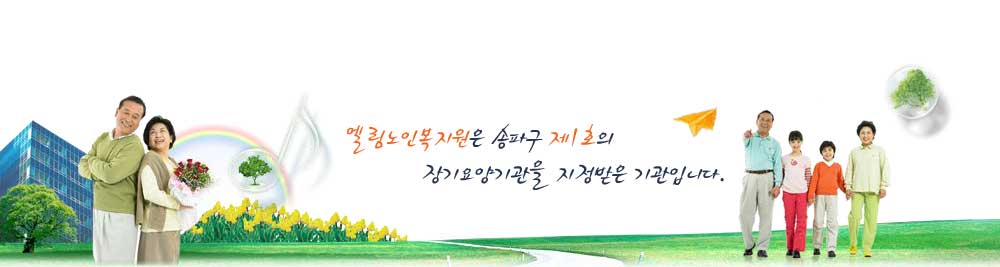 멜림노인복지원은 송파구 제1호의
장기요양기관을 지정받은 기관입니다.